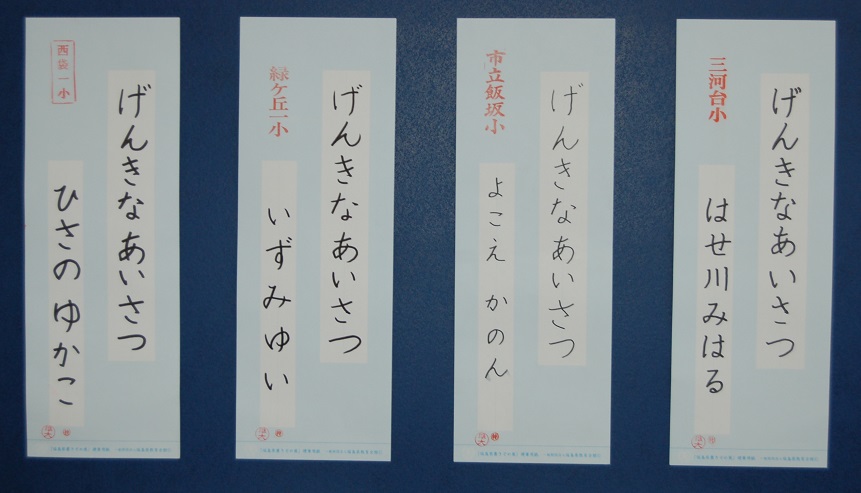 西袋一小
げんきなあいさつ
ひさの ゆかこ
緑ケ丘一小
げんきなあいさつ
いずみゆい
市立飯坂小
げんきなあいさつ
よこえ かのん
三河台小
げんきなあいさつ
はせ川みはる